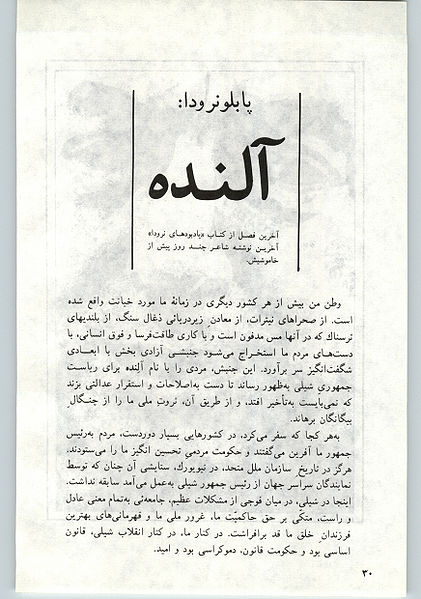 پابلونرودا:
آلنده
آخرین فصل از کتاب «یادبودهای نرودا»
آخرین نوشته شاعر چند روز پیش از
خاموشیش.
وطن من بیش از هر کشور دیگری در زمانهٔ ما مورد خیانت واقع شده
است. از صحراهای نیترات، از معادن زیردریائی ذغال سنگ، از بلندیهای
ترسناك که در آنها مس مدفون است و با کاری طاقت‌فرسا و فوق انسانی، با
دست‌های مردم ما استخراج می‌شود جنبشی آزادی بخش با ابعادی
شگفت‌انگیز سر برآورد. این جنبش، مردی را با نام آلنده برای ریاست
جمهوری شیلی به‌ظهور رساند تا دست به‌اصلاحات و استقرار عدالتی بزند
که نمی‌بایست به‌تأخیر افتد، و از طریق آن، ثروت ملی ما را از چنگال
بیگانگان برهاند.
به‌هر کجا که سفر می‌کرد، در کشورهایی بسیار دوردست، مردم به‌رئیس
جمهور ما آفرین می‌گفتند و حکومت مردمی تحسین انگیز ما را می‌ستودند.
هرگز در تاریخ سازمان ملل متحد، در نیویورك، ستایشی آن چنان که توسط
نمایندگان سراسر جهان از رئیس جمهور شیلی به‌عمل می‌آمد سابقه نداشت.
اینجا در شیلی، در میان فوجی از مشکلات عظیم، جامعه‌ئی به‌تمام معنی عادل
و راست، متکی بر حق حاکمیّت ما، غرور ملی ما و قهرمانی‌های بهترین
فرزندان خلق ما قد برافراشت. در کنار ما، در کنار انقلاب شیلی، قانون
اساسی بود و حکومت قانون، دموکراسی بود و امید.
۳۰